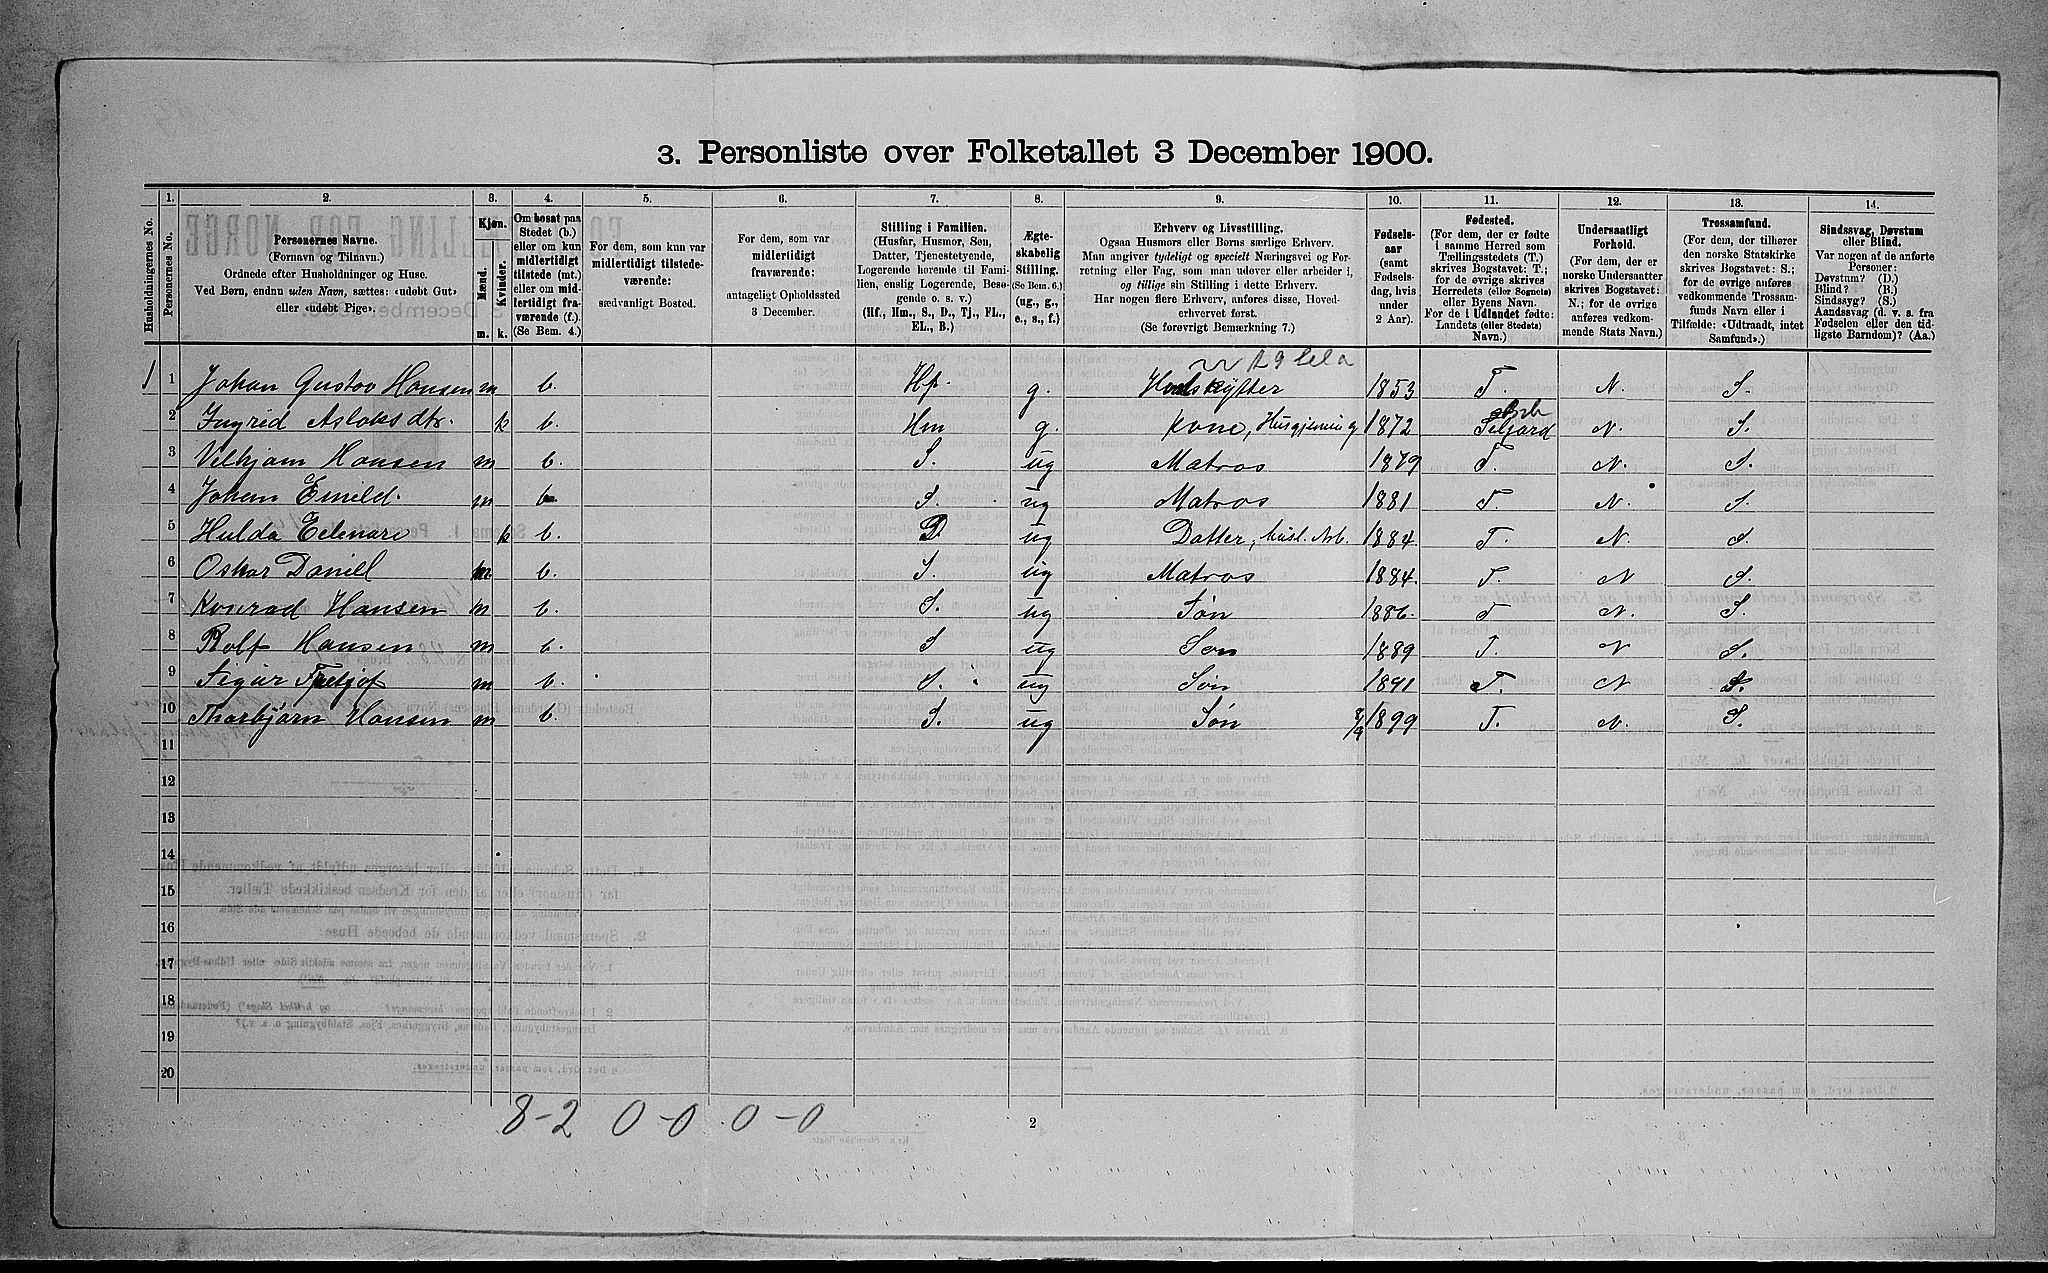 3. Personliste over Folketallet 3 December 1900.
Husholdningernes No.
1.
Personernes No.
2.
Personernes Navne.
(Fornavn og Tilnavn.)
Ordnede efter Husholdninger og Huse.
Ved Børn, endnu uden Navn, sættes: «udøbt Gut»
eller «udøbt Pige».
3.
Kjøn.
Mænd.
Kvinder.
m. k.
4.
Om bosat paa
Stedet (b.)
eller om kun
midlertidigt
tilstede (mt.)
eller om mid-
lertidigt fra-
værende (f.).
(Se Bem. 4.)
5.
For dem, som kun var
midlertidigt tilstede-
værende:
sædvanligt Bosted.
6.
For dem, som var
midlertidigt
fraværende:
antageligt Opholdssted
3 December.
7.
Stilling i Familien.
(Husfar, Husmor, Søn,
Datter, Tjenestetyende,
Logerende hørende til Fami-
lien, enslig Logerende, Besø-
gende o. s. v.)
(Hf., Hm., S., D., Tj., FL.,
EL., B.)
8.
Ægte-
skabelig
Stilling.
(Se Bem. 6.)
(ug., g.,
e., s., f.)
9.
Erhverv og Livsstilling.
Ogsaa Husmors eller Børns særlige Erhverv.
Man angiver tydeligt og specielt Næringsvei og For-
retning eller Fag, som man udover eller arbeider i,
og tillige sin Stilling i dette Erhverv.
Har nogen flere Erhverv, anføres disse, Hoved-
erhvervet først.
(Se forøvrigt Bemærkning 7.)
10.
Fødsels-
aar
(samt
Fødsels-
dag, hvis
under
2 Aar).
11.
Fødested.
(For dem, der er fødte
i samme Herred som
Tællingsstedets (T.)
skrives Bogstavet: T.;
for de øvrige skrives
Herredets (eller Sognets)
eller Byens Navn.
For de i Udlandet fødte:
Landets (eller Stedets)
Navn.)
12.
Undersaatligt
Forhold.
(For dem, der er
norske Undersaatter
skrives Bogstavet:
N.; for de øvrige
anføres vedkom-
mende Stats Navn.)
13.
Trossamfund.
(For dem, der tilhører
den norske Statskirke
skrives Bogstavet: S.;
for de øvrige anføres
vedkommende Trossam-
funds Navn eller i
Tilfælde: «Udtraadt, intet
Samfund».)
14.
Sindssvag, Døvstum
eller Blind.
Var nogen af de anførte
Personer:
Døvstum? (D.)
Blind? (B.)
Sindssyg? (S.)
Aandssvag (d. v. s. fra
Fødselen eller den tid-
ligste Barndom)? (Aa.)
1 1 Johan Gustav Hansen m b. Hf. g. 1853 T. N. S.
2 Ingrid Aslaksdtr. k b. Hm g. Kone, Husgjerning 1872 Seljord N. S.
3 Velhjam Hansen m b. S. ug Matros 1879 T. N. S.
4 Johan Emild. m b S. ug Matros 1881 T. N. S.
5 Hulda k b. D. ug Datter, husl. Arb. 1884. T. N. S.
6 Oskar Daniel m b. S. ug Matros 1884. T. N S.
7 Konrad Hansen m b. S. ug Søn 1886. T N. S.
8 Rolf Hansen m b. S ug Søn 1889 T. N S.
9 Sigur m b. S. ug Søn 1891 T. N S.
10 Thorbjørn Hansen m b. S. ug Søn 8/9 1899 T. N. S.
11
12
13
14
15
16
17
18
19
20
8-2 0-0 0-0
2